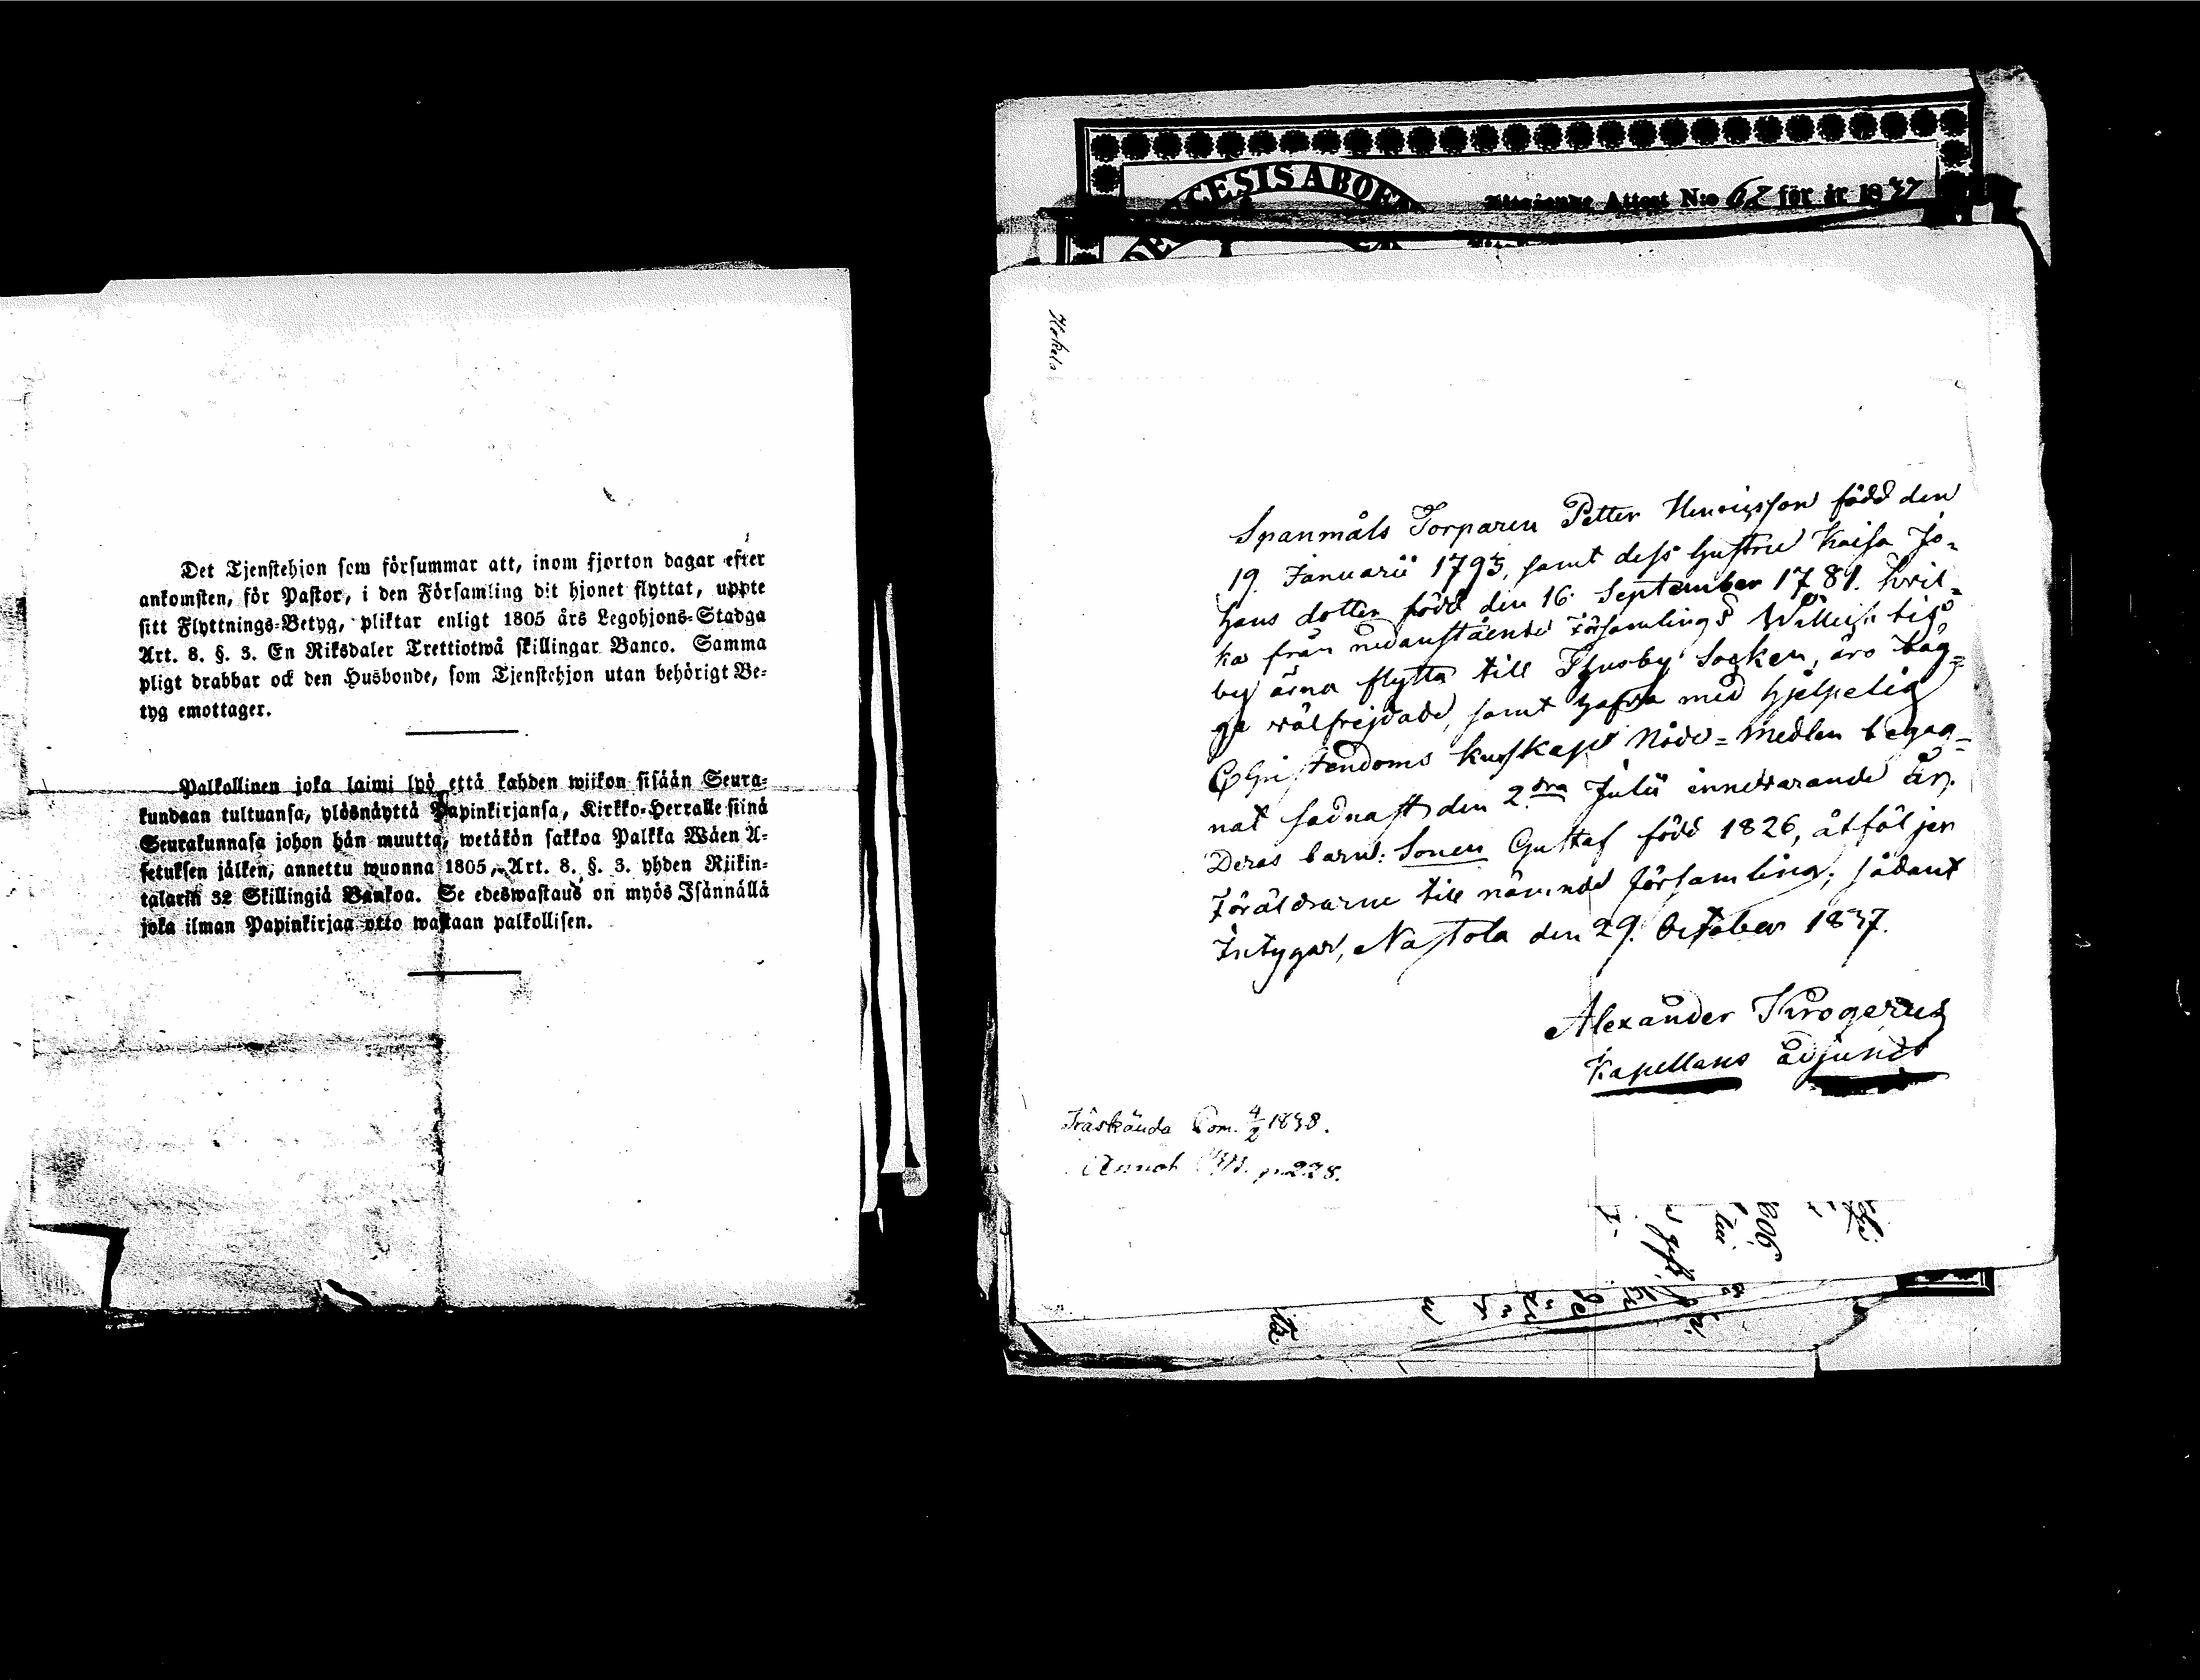 Det Tjenstehjon som försummar att, inom fjorton dagar efter
ankomsten, för Pastor, i den Församling dit hjonet flyttat, uppte
sitt Flyttnings-Betyg, pliktar enligt 1805 års Legohjons-Stadga
Art. 8. §. 3. En Riksdaler Trettiotwå skillingar Banco. Samma
pligt drabbar ock den Husbonde, som Tjenstehjon utan behörigt Be-
tyg emottager.
Palkollinen joka laimi lyö että kahden wiikon sisään Seura-
kundaan tultuansa, ylösnäyttä Papinkirjansa, Kirkko-Herralle siinä
Seurakunnasa johon hän muutta, wetäkön sakkoa Palkka Wäen A-
setuksen jälken, annettu wuonna 1805, Art. 8. §. 3. yhden Riikin-
talarin 32 Skillingiä Bankoa. Se edeswastaus on myös Isännällä
joka ilman Papinkirjaa otto wastaan palkollisen.
CESIS ABOEN
Attest N:o 62 för år 1837
Spanmåls Torparen Petter Henricsson född den
19. Januarii 1793, samt dess hustru Kaisa Jo-
hans dotter född den 16. September 1781. hvil-
ka från nedanstående Församlings
by ärna flytta till Thusby Socken, äro båg-
ge välfrejdade, samt hafva med hjelpelig
Christendoms kunskap Nåde-Medlen begag-
nat sednast den 2dra Julii innevarande år.
Deras barn: Sonen Gustaf född 1826, åtföljer
Föräldrarne till nämnde församling; sådant
Intygar, Nastola den 29. October 1837.
Alexander Krogerus
Kapellans adjunct
Träskända Com. 4/2 1838.
Annot p. 228.